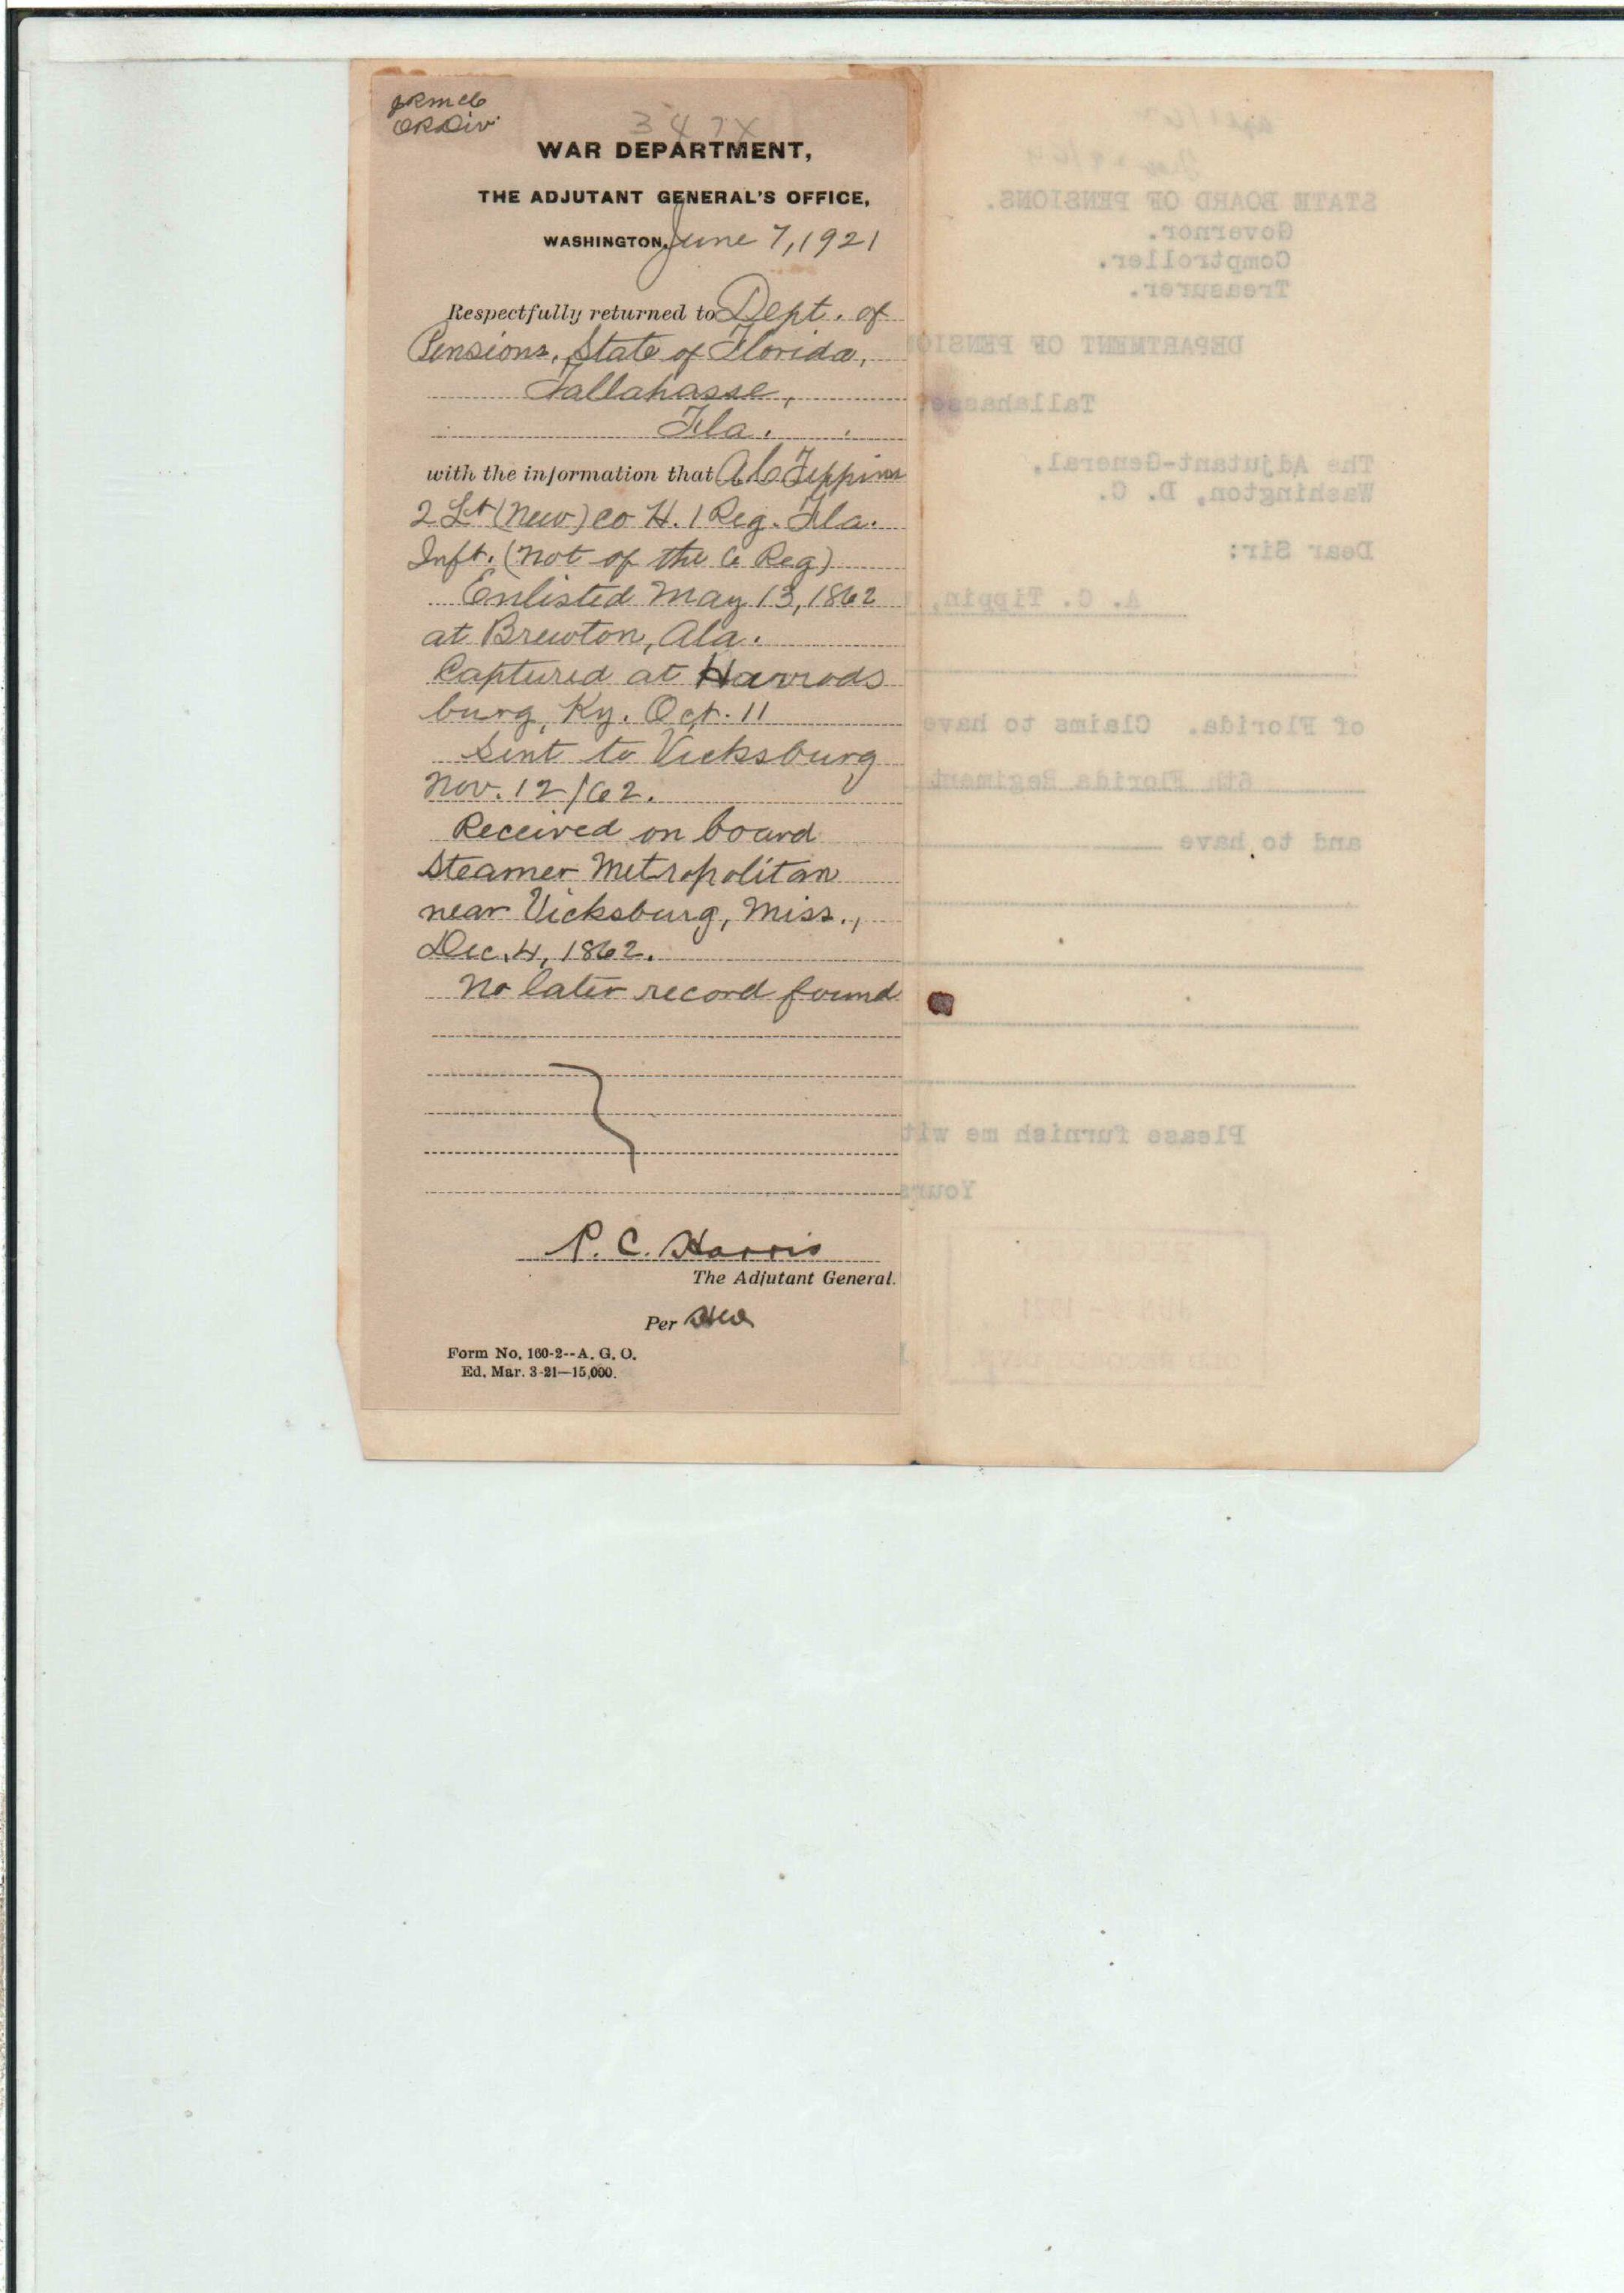 JRMcC
OR Div.
347X
WAR DEPARTMENT,
THE ADJUTANT GENERAL'S OFFICE,
WASHINGTON, June 7, 1921
Respectfully returned to Dept. of
Pensions, State of Florida,
Tallahasse,
Fla.
with the information that A C Tippins
2 Lt (New) Co H. 1 Reg. Fla.
Inft. (Not of the 6 Reg)
Enlisted May 13, 1862
at Brewton, Ala.
Captured at Harrods
burg, Ky. Oct. 11
Sent to Vicksburg
Nov. 12/62.
Received on board
Steamer Metropolitan
near Vicksburg, Miss.,
Dec. 4, 1862.
No later record found
P. C. Harris
The Adjutant General.
Per
Form No. 160-2--A. G. O.
Ed. Mar. 3-21—15,000.
STATE BOARD OF PENSIONS.
Governor.
Comptroller.
Treasurer.
DEPARTMENT OF PENSIO
Tallahassee
The Adjutant-General,
Washington, D. C.
Dear Sir:
A. C. Tippin,
of Florida. Claims to have
6th Florida Regiment
and to have
Please furnish me wit
Yours